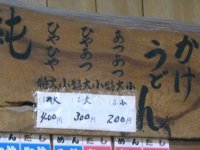 かけ
うどん
あつあつ
ひやあつ
ひやひや
小
大
特大
小
大
特大
小
200円
大
300円
400円
純
めん
だし
めん
だし